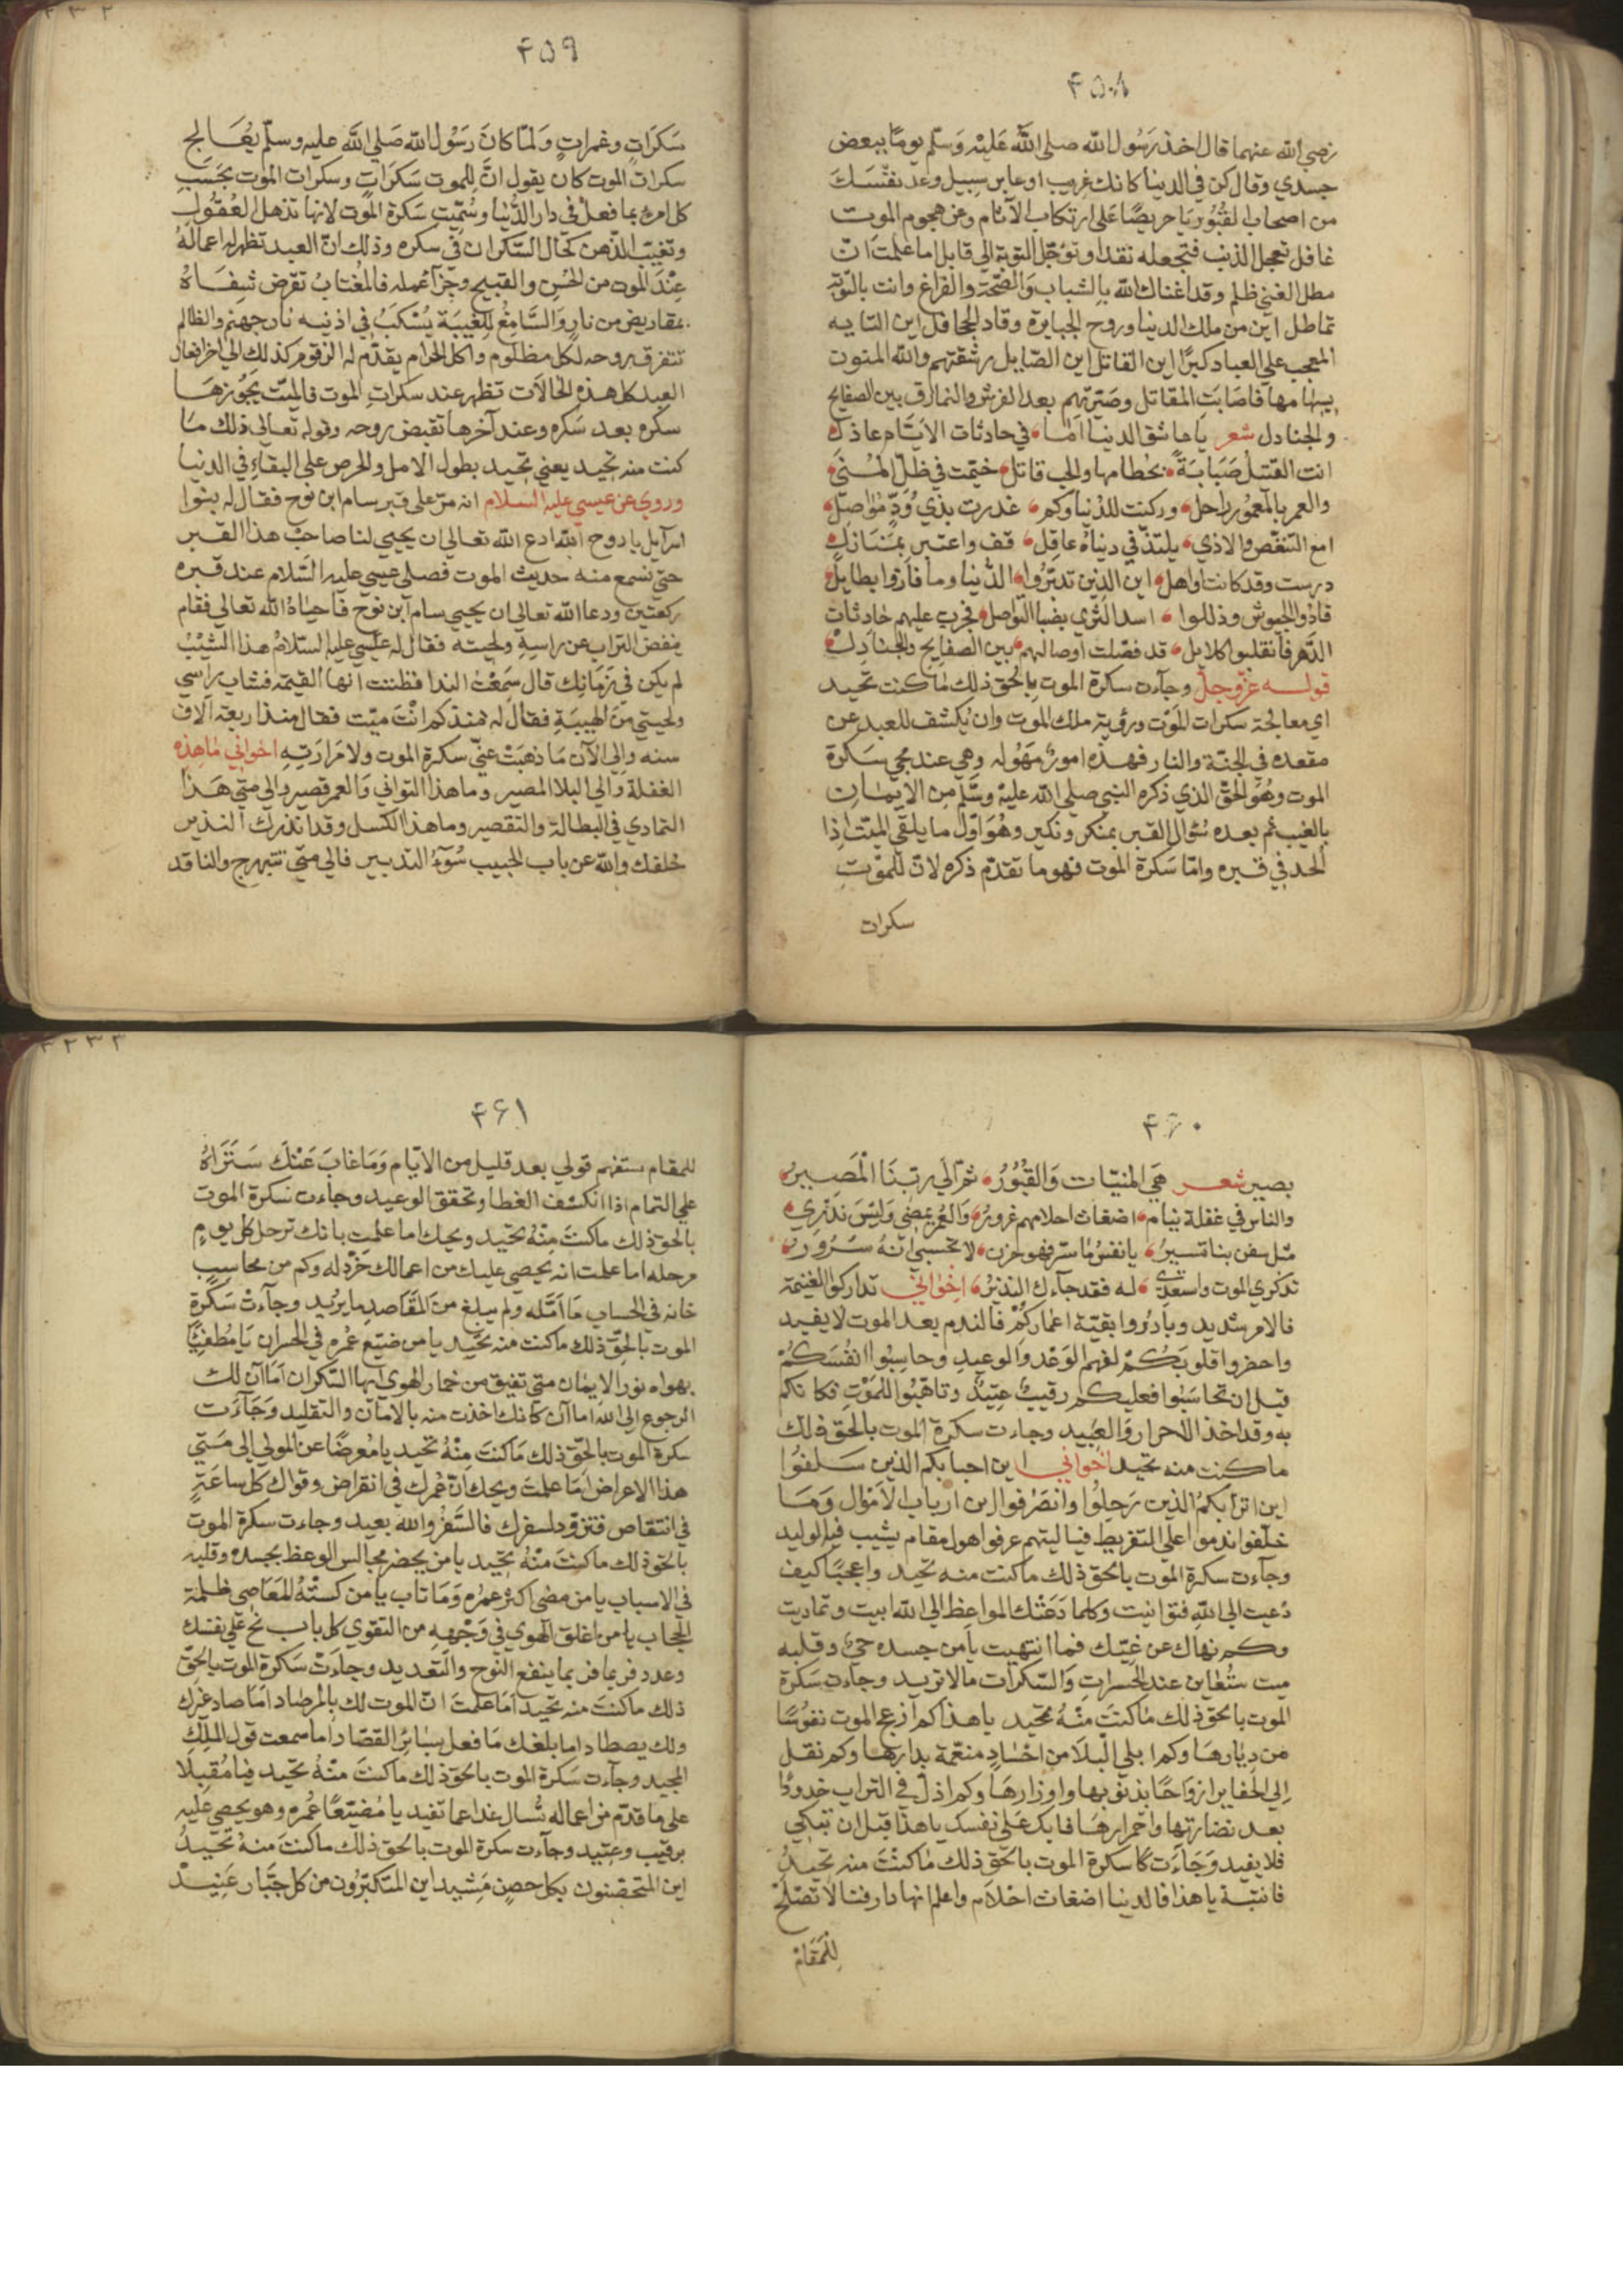 ۴۵۸
رضي الله عنهما قال اخذ رَسُول الله صلى الله عَليْه وَسَلّم يومًا ببعض
جسدي وقال كن في الدنيا كانك غريب او عابر سبيل وعد نفسَكَ
من اصحاب القُبُور يَا حريصًا عَلى ارتكاب الآثام وعن هجوم الموت
غافل تعجل الذنب فتجعله نقدا وتؤجّل التوبة الى قابل اما علمتَ انّ
مطل الغني ظلم وقد اغناك الله بالشباب وَالصّحّة والفراغ وانت بالتوبة
تماطل اين من ملك الدنيا وروح الجبابرة وقاد الجحافل اين التايه
المعجب على العباد كبرًا اين القاتل اين الصّايل رشقتهم والله المنون
بسهامها فاصَابَت المقاتل وصَيّرتهم بعد الفرش والنمارق بين الصفايح
والجنادل شعر يا عاشق الدنيا اما في حادثات الايّام عاذل
انت القتيل صَبَابةً بحُطامها والحب قاتل خيّمت في ظلّ المُنى
والعمر بالمعمُور راحل وركنت للدُنيا وكم غدرت بذي وُدٍّ مُوَاصِل
امع التنغّص والاذي يلتذّ في دنياه عاقل قف واعتبر بمَنَازِلٍ
درست وقد كانت اواهل اين الذين تديّرُوا الدُّنيا وما فازوا بطايل
قادُوا الجيوش وذللوا اسد الشري بضبا النواصل فجرت عليهم حادثات
الدّهر فانقلبوا كلا بل قد فصّلت اوصالهم بين الصفايح والجنادِل
قوله عزّ وجلّ وجآءت سكرة الموت بالحق ذلك ما كنت تحيد
اي معالجة سكرات المَوْت ورؤية ملك الموت وان يُكشف للعبد عن
مقعده في الجنّة والنار فهذه امورٌ مَهُوله وهي عند مجي سَكرة
الموت وهُوَ الحقّ الذي ذكره النبي صلى الله عليه وسَلّم من الايمَان
بالغيب ثم بعده سُؤال القبر بمنكر ونكير وهُوَ اوّل ما يلقي الميّت اذا
الحد في قبره وامّا سَكرة الموت فهو ما تقدّم ذكره لانّ للموْتِ
سكرات
۴۵۹
سَكرَاتٍ وغمراتٍ وَلمّا كانَ رَسُول الله صَلى الله عليه وسلّم يُعَالج
سكرات الموت كان يقول انَّ للموت سَكرَاتٍ وسكرات الموت بحَسَبِ
كل امرئ بما فعل في دار الدُّنيا وسُمّيت سَكرة المَوت لانها تذهل العُقُول
وتغيّب الذّهن كحَال السّكران في سكره وذلك انّ العبد تظهر له اعماله
عِنْد الموت من الحُسْنِ والقبيح وجزآء عمله فالمُغتابُ تقرض شفَاهُ
بمقاريض من نارٍ وَالسَّامِعُ للغيبَة يُسْكَبُ في اذنيه نار جهنم والظالم
تتفرق روحه لكل مظلوم واكل الحرام يقدّم له الزقوم كذلك الى اخر افعال
العبد كل هذه الحالات تظهر عند سكراتِ الموت فالميّت يجُوزهَا
سكره بعد سَكره وعند آخرها تقبض روحه وقوله تعالى ذلك مَا
كنت منه تحيد يعني تحيد بطول الامل والحرص على البقاءِ في الدنيا
وروي عن عيسي عليه السلام انه مَرّ على قبر سام ابن نوح فقال له بنوا
اسرآيل يا روح الله ادع الله تعالى ان يحيي لنا صاحبَ هذا القبر
حتي نسمع منه حديث الموت فصلى عيسي عليه السّلام عند قبره
ركعتين ودعا الله تعالى ان يحيي سام ابن نوح فاحيَاهُ الله تعالى فقام
ينفض التراب عن راسه ولحيته فقال له عيسي عليه السّلامُ هذا الشيْبُ
لم يكن في زمَانك قال سَمِعْتُ الندا فظننت انها القيمة فشاب راسي
ولحيتي من الهيبَةِ فقال له منذكم انْتَ ميّت فقال منذ اربعة الاف
سنه والى الآن مَا ذهبَتْ عنّي سكرة الموت ولا مَرارَتهِ اخواني مَا هذِهِ
الغفلة والى البلا المصير وما هذا التواني وَالعمر قصير والى متي هَذا
التمادي في البطالة والتقصير وما هذا الكسل وقد انذرك النذير
خلفك والله عن باب الحبيب سُوْءُ التدبير فالى متي تتبهرج والناقد
۴۶۰
بصير شعر هيَ المنيّات وَالقُبُورُ ثمّ الى ربّنَا المَصِيرُ
والناس في غفلة نيام اضغاث احلامهم غرورُ وَالعُمر يمضي وَليْسَ ندْرِي
مثل سفن بنا تسيرُ يا نفسُ ما سرّ فهو حزن لا تحسبي انّه سُرُورُ
تذكري الموت واستعدّي له فقد جآءك النذيرُ اخواني تداركوا الغنيمة
فالامر شديد وبادرُوا بقيّة اعماركُمْ فالندم بعد الموت لا يفيد
واحضروا قلوبَكُمْ لفهم الوَعْد وَالوعيدِ وحاسِبُوا انفُسَكُمْ
قبل ان تحاسَبُوا فعليكم رقيبٌ عتِيدٌ وتاهّبُوا للمَوْتِ فكانكم
به وقد اخذ الاحرار وَالعَبيد وجاءت سكرة الموت بالحق ذلك
ما كنت منه تحيد اخواني اين احبابكم الذين سَلفُوا
اين اترابكمُ الذين رَحلُوا وانصَرفوا اين ارباب الاَمْوال وَمَا
خلّفوا ندموا على التفريط فيا ليتهم عرفوا هول مقام يشيب فيه الوليد
وجآءت سكرة الموت بالحق ذلك ما كنت منه تحيد واعجبًا كيف
دُعيت الى اللهِ فتوانيت وكلما دَعَتْك المواعِظ الى الله ابيت وتماديت
وكم نهاك عن غيّك فما انتهيت يا من جسده حيّ وقلبه
ميت ستُعاين عند الحَسراتِ وَالسّكرات ما لا تريد وجآءت سَكرَة
الموت بالحق ذلك مَا كنتَ منْهُ تحيد يا هذا كم ازعج الموت نفُوسًا
من دِيَارهَا وكم ابلي البلا من اجْسَادٍ منعّمة بدارها وكم نقل
الى الحفاير ارْوَاحًا بذنوبها واوزارهَا وكم اذلّ في التراب خدودًا
بعد نضارتها واحمرارهَا فابك عَلى نفسك يا هذا قبل ان تبكي
فلا يفيد وَجَآءَت سكرة الموت بالحق ذلك مَا كنْتَ منه تحيدُ
فانتبة يا هذا فالدنيا اضغاث احْلام واعلم انها دار فنا لا تصْلحُ
لِلمَقَامْ
۴۶۱
للمقام ستفهم قولي بعد قليل من الايّام وَمَا غابَ عَنْكَ سَتَرَاهُ
على التمام اذا انكشف الغطا وتحقق الوعيد وجاءت سَكرة الموت
بالحق ذلك ما كنتَ مِنْهُ تحَيد ويحك اما علمت بانك ترحل كل يومٍ
مرحله اما علمت انه يحصي عليك من اعمالك خردِله وكم من محاسبٍ
خانه في الحساب مَا امّله ولم يبلغ منَ المَقَاصدِ ما يرُيد وجآءت سَكرَةُ
الموت بالحقّ ذلك ما كنت منه تحَيد يا من ضيّع عُمره في الخسران يَا مُطفيًا
بهواه نور الايمان متي تفيق من خمار الهوي ايها السّكران امَا آن لك
الرجوع الى الله اما آن كانك اخذت منه بالامان والتقليد وَجَآءَت
سكرة الموت بالحق ذلك مَا كنتَ مِنْهُ تحَيد يا مُعرضًا عن المولي الى متي
هذا الاعراض امَا علمتَ ويحك انّ عُمرك في انقراض وقواك كل ساعَةٍ
في انتقاص فتزوّد لسفرك فالسّفرُ والله بعيد وجاءت سكرة الموت
بالحق ذلك ما كنتَ منْهُ تحَيد يا من يحضر مجالس الوعظ بجسده وقلبه
في الاسباب يا من مضى اكثرُ عمُره وَمَا تاب يا من كستْهُ المَعَاصي ظلمة
الحجاب يا من اغلق الهوي في وَجْههِ من التقوي كل باب نح على نفسك
وعدد فربما ينفع النوح والتعديد وجاءَتْ سَكرة الموت بالحقّ
ذلك ما كنتَ منه تحَيد امَا علمتَ انّ الموت لك بالمرصاد امَا صاد غيرك
ولك يصطاد اما بلغك مَا فعل بسَائِر القصّاد اما سمعت قول المَلِكِ
المجيد وجآءت سَكرة الموت بالحق ذلك مَا كنتَ منْهُ تحَيد فيا مُقبِلا
على ما قدّم من اعماله تُسال غدا عما تفيد يا مُضَيّعًا عُمره وهو يحصي عَليْه
برقيب وعتِيد وجآءت سكرة الموت بالحق ذلك ما كنتَ منهُ تحَيدُ
اين المتحَصّنون بكل حصن مَشِيد اين المتكبّرُون من كل جبّار عَنِيدْ